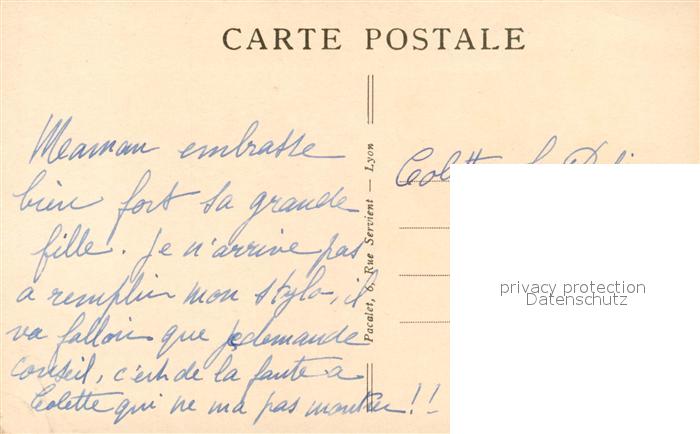 CARTE POSTALE
Maman embrasse
bien fort sa grande
fille. Je n'arrive pas
a remplir mon stylo, il
va falloir que je demande
conseil, c'est de la faute a
Colette qui ne ma pas montrer !!
Pacalet, 6, Rue Servient — Lyon
Colette
privacy protection
Datenschutz